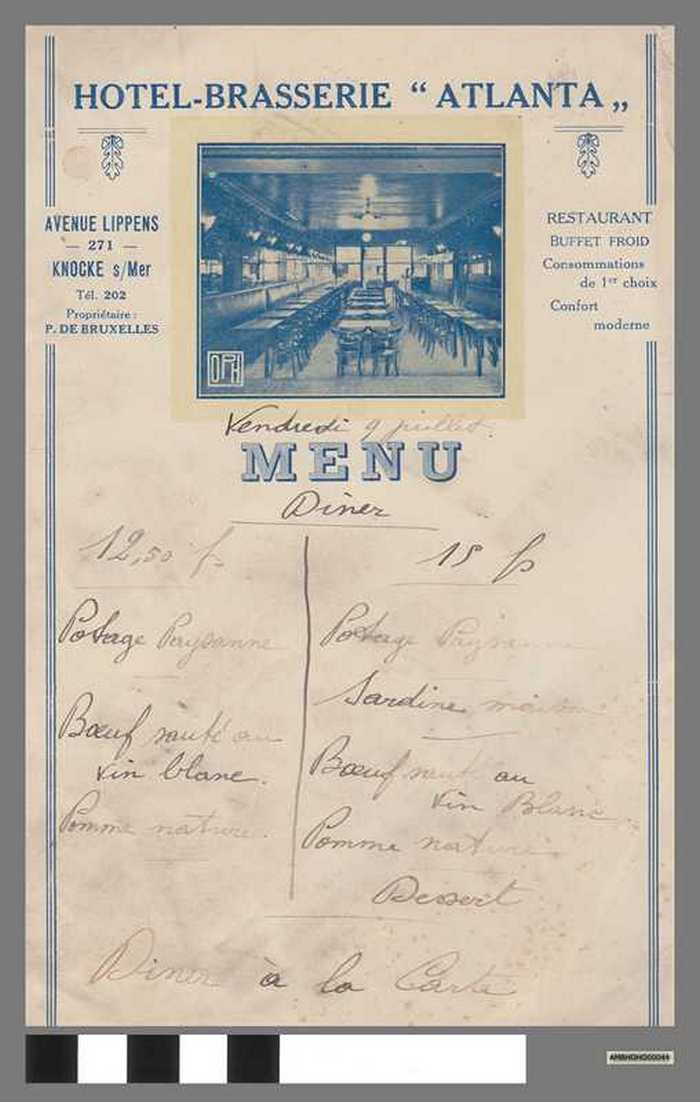 HOTEL-BRASSERIE “ATLANTA„
AVENUE LIPPENS
— 271 —
KNOCKE s/Mer
Tél. 202
Propriétaire :
P. DE BRUXELLES
RESTAURANT
BUFFET FROID
Consommations
de 1er choix
Confort
moderne
OPH
Vendredi 9 juillet.
MENU
Diner
12,50 fr
Potage Paysanne
Bœuf sauté au
vin blanc.
Pomme nature.
15 fr
Potage Paysanne
Sardine maison
Bœuf sauté au
vin Blanc
Pomme nature
Dessert
Diner à la Carte
AMBHOHO00044